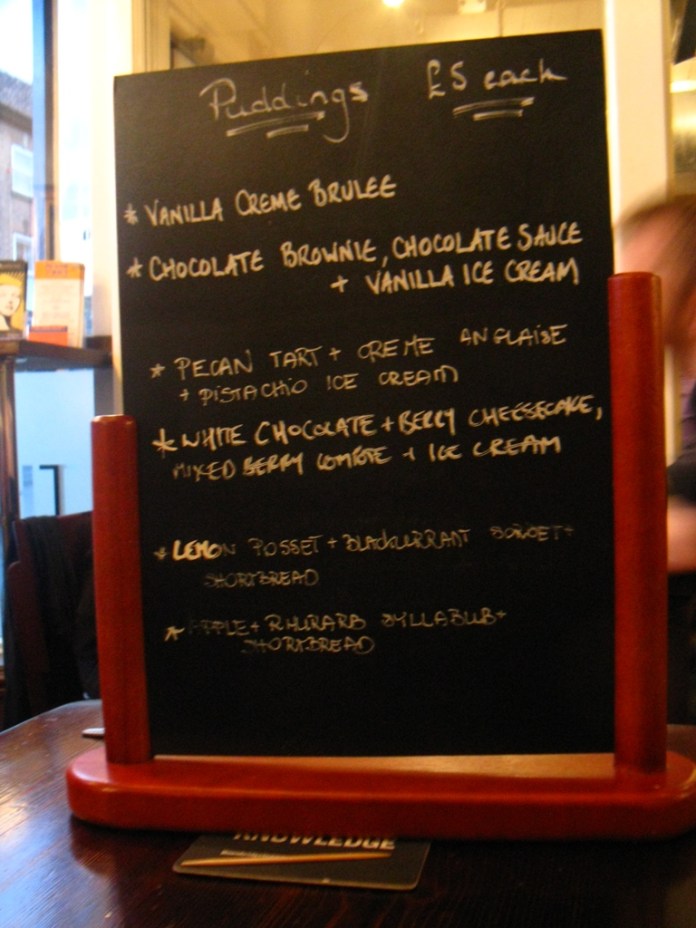 Puddings £5 each
* VANILLA CREME BRULEE
* CHOCOLATE BROWNIE, CHOCOLATE SAUCE
+ VANILLA ICE CREAM
* PECAN TART + CREME ANGLAISE
+ PISTACHIO ICE CREAM
* WHITE CHOCOLATE + BERRY CHEESECAKE,
MIXED BERRY COMPOTE + ICE CREAM
* LEMON POSSET + BLACKCURRANT SORBET +
SHORTBREAD
* APPLE + RHUBARB SYLLABUB +
SHORTBREAD
KNOWLEDGE